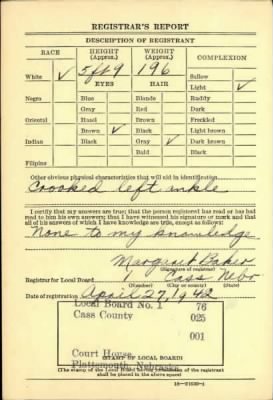 REGISTRAR'S REPORT
DESCRIPTION OF REGISTRANT
RACE HEIGHT (Approx.) WEIGHT (Approx.) COMPLEXION
5 ft 9 196
White ✓ EYES HAIR Sallow
Light ✓
Negro Blue Blonde Ruddy
Gray Red Dark
Oriental Hazel Brown Freckled
Brown ✓ Black Light brown
Indian Black Gray ✓ Dark brown
Bald Black
Filipino
Other obvious physical characteristics that will aid in identification
Crooked left ankle
I certify that my answers are true; that the person registered has read or has had
read to him his own answers; that I have witnessed his signature or mark and that
all of his answers of which I have knowledge are true, except as follows:
None to my knowledge
Margaret Baker
(Signature of registrar)
Registrar for Local Board 1 Cass Nebr
(Number) (City or county) (State)
Date of registration April 27, 1942
Local Board No. 1 76
Cass County 025
001
Court House
Plattsmouth, Nebraska
(STAMP OF LOCAL BOARD)
(The stamp of the Local Board having jurisdiction of the registrant
shall be placed in the above space)